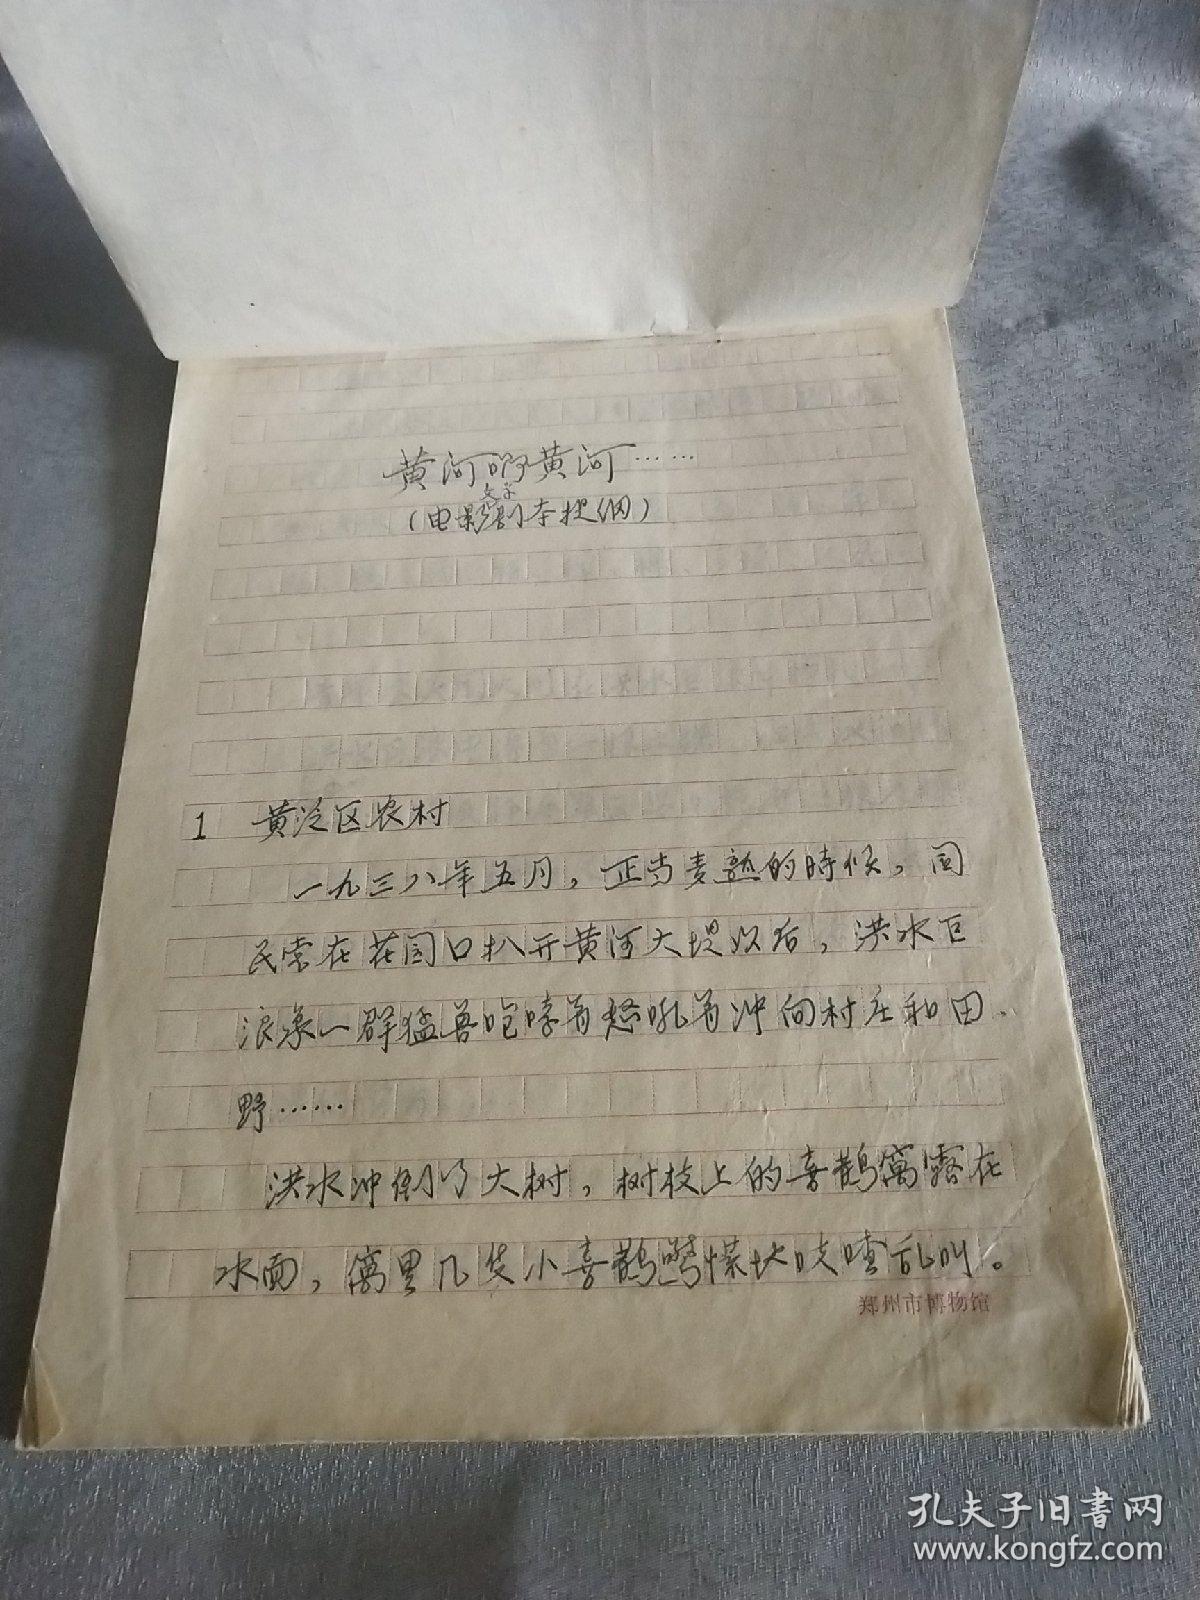 黄河啊黄河……
文学
(电影剧本提纲)
1 黄泛区农村
一九三八年五月,正当麦熟的時候,国
民党在花园口扒开黄河大堤以后,洪水巨
浪象一群猛兽咆哮着怒吼着冲向村庄和田
野……
洪水冲倒了大树,树枝上的喜鹊窝露在
水面,窝里几隻小喜鹊驚慌地吱喳乱叫。
郑州市博物馆
孔夫子旧書网
www.kongfz.com